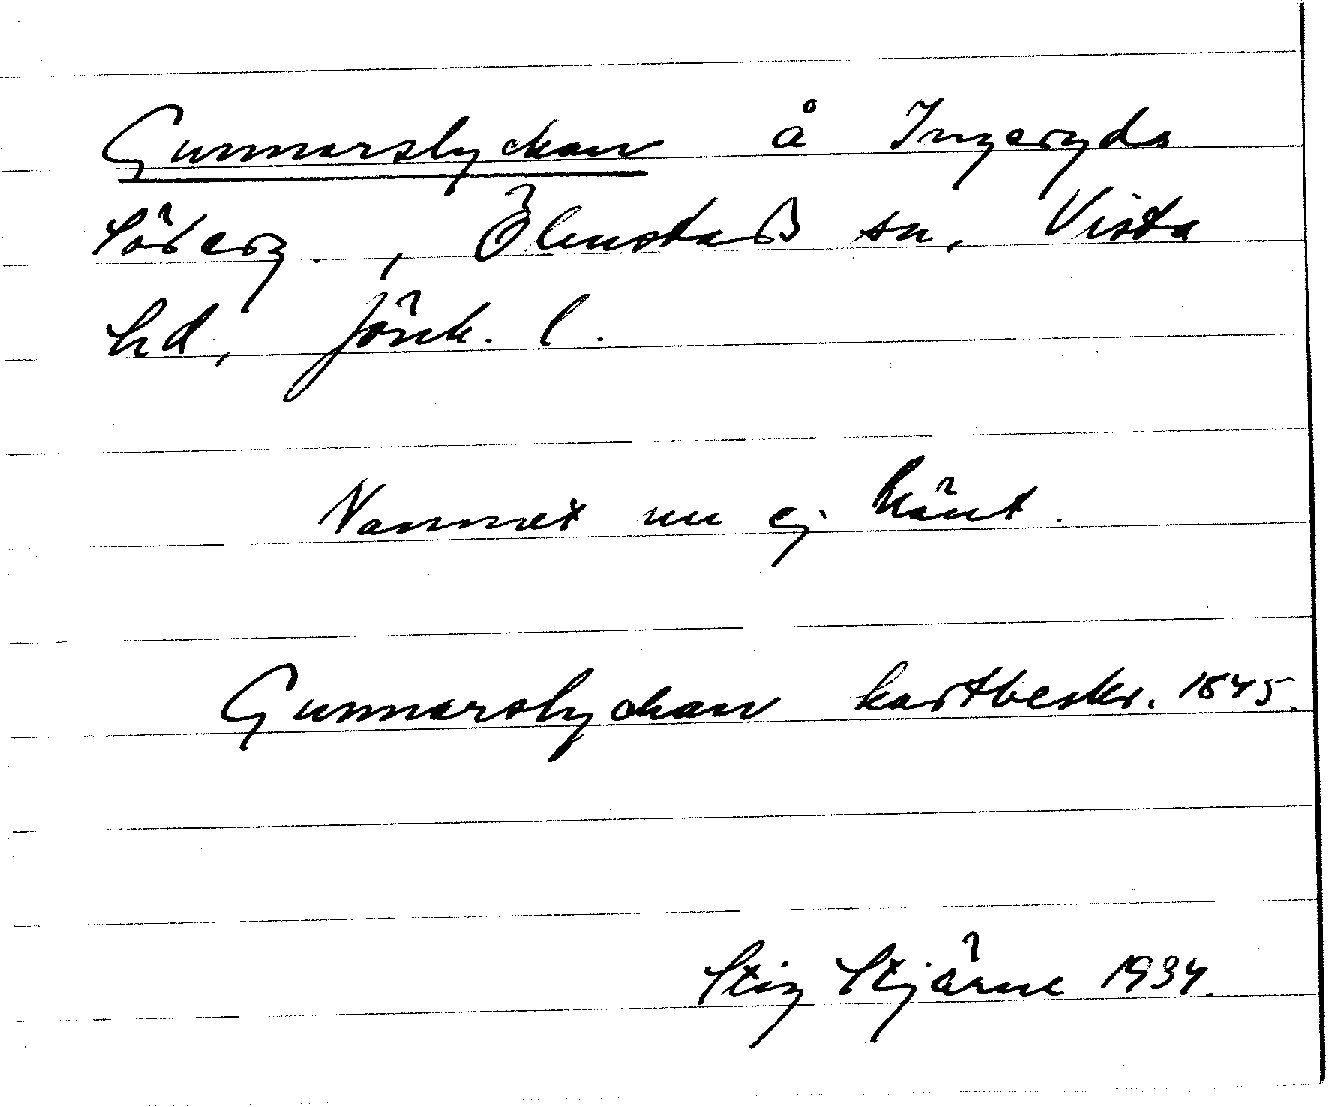 Gunnarslyckan å Ingeryda
Söderg., Ölmstads sn, Vista
hd, Jönk. l.
Namnet nu ej känt.
Gunnarslyckan kartbeskr. 1845.
Stig Stjärne 1934.